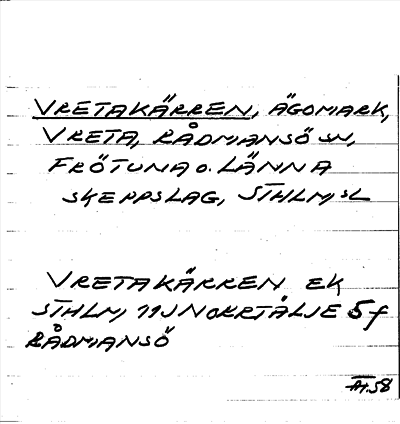 VRETAKÄRREN, ÄGOMARK,
VRETA, RÅDMANSÖ SN,
FRÖTUNA O. LÄNNA
SKEPPSLAG, STHLM, SL
VRETAKÄRREN EK
STHLM, 11J NORRTÄLJE 5f
RÅDMANSÖ